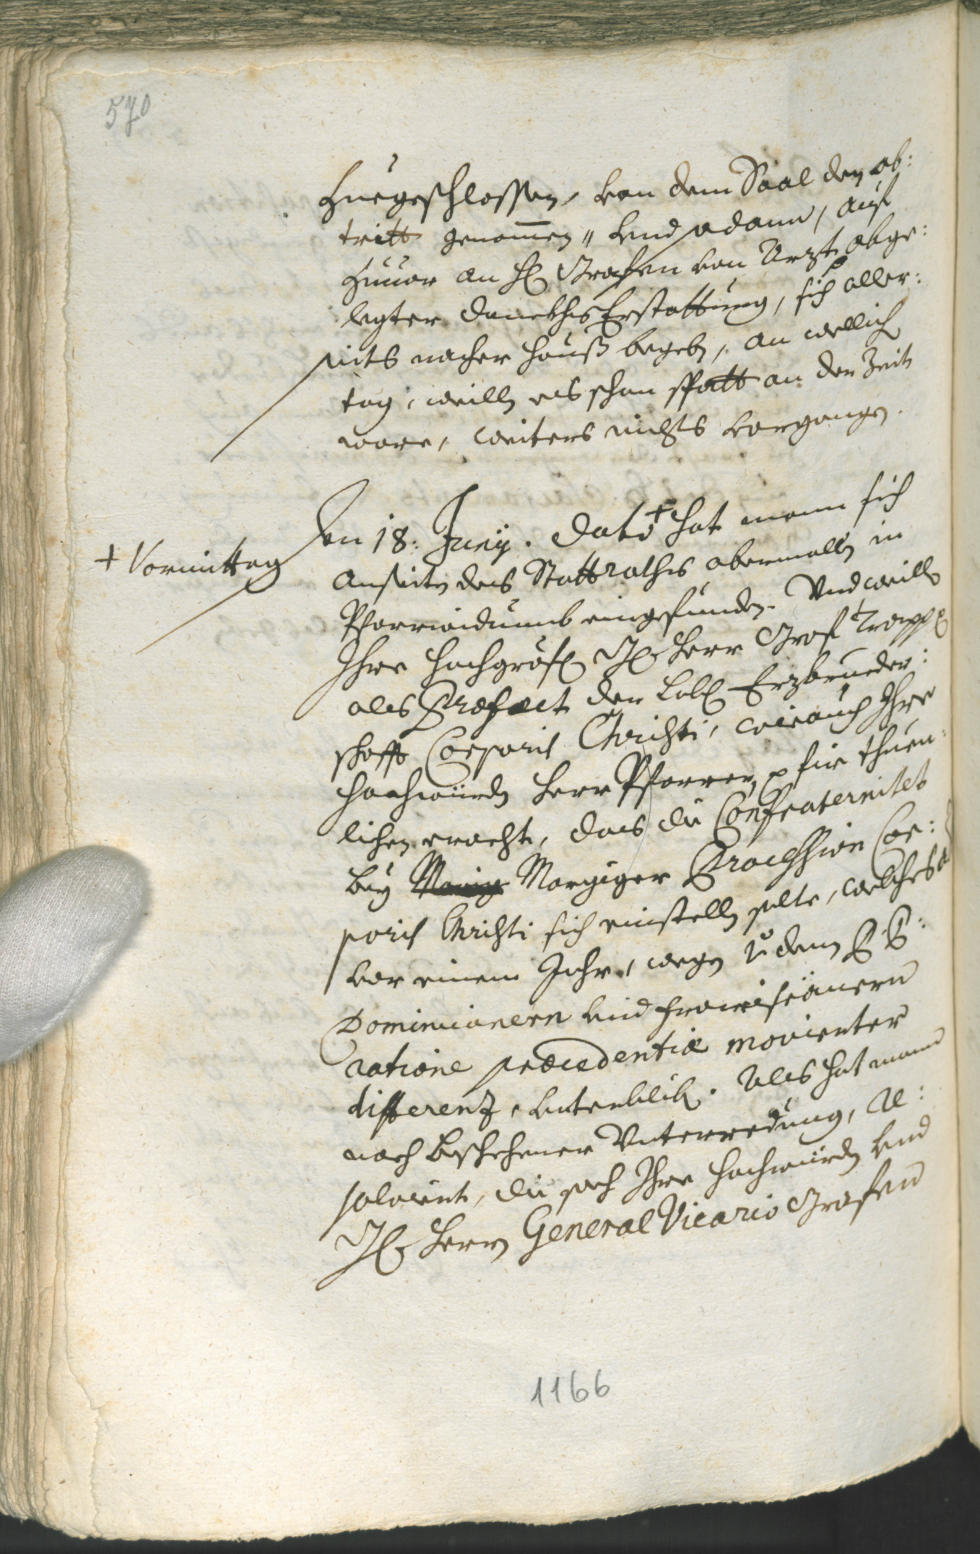 570
Zuegeschlossen, von dem Saal den ab:
tritt genommen, vnd sodann, auf
Zuuor an H. Grafen von Arzt abge:
legter danckhs Erstattung, sich aller:
seits nacher Hauß begeben, an welich
tag, weillen es schon spatt an der Zeit
ware, weiters nichts vorgangen.
Den 18: Junÿ. Dato + hat mann sich
+ Vormittag
anseiten des Stattrathes abermallen in
Pfarrwidumb eingefunden. Vnd weillen
Ihre Hochgräfl. Herr Graf Trapp
als Præfect der Lobl. Erzbrueder:
schafft Corporis Christi, wie auch Ihre
Hochwürden Herr Pfarrer, für thuen:
lichen eracht, das die Confraternitet
beÿ Morgiger Procession Cor:
poris Christi sich einstellen solte, welches
vor einem Jahr, wegen denen P P:
Dominicanern vnd Franciscanern
ratione præcedentiæ movierter
differenz, vnterbliben. Als hat mann
nach beschehener Vnterredung, Re:
solviert, die sach Ihre Hochwürden vnd
Herrn General Vicario Grafen
1166